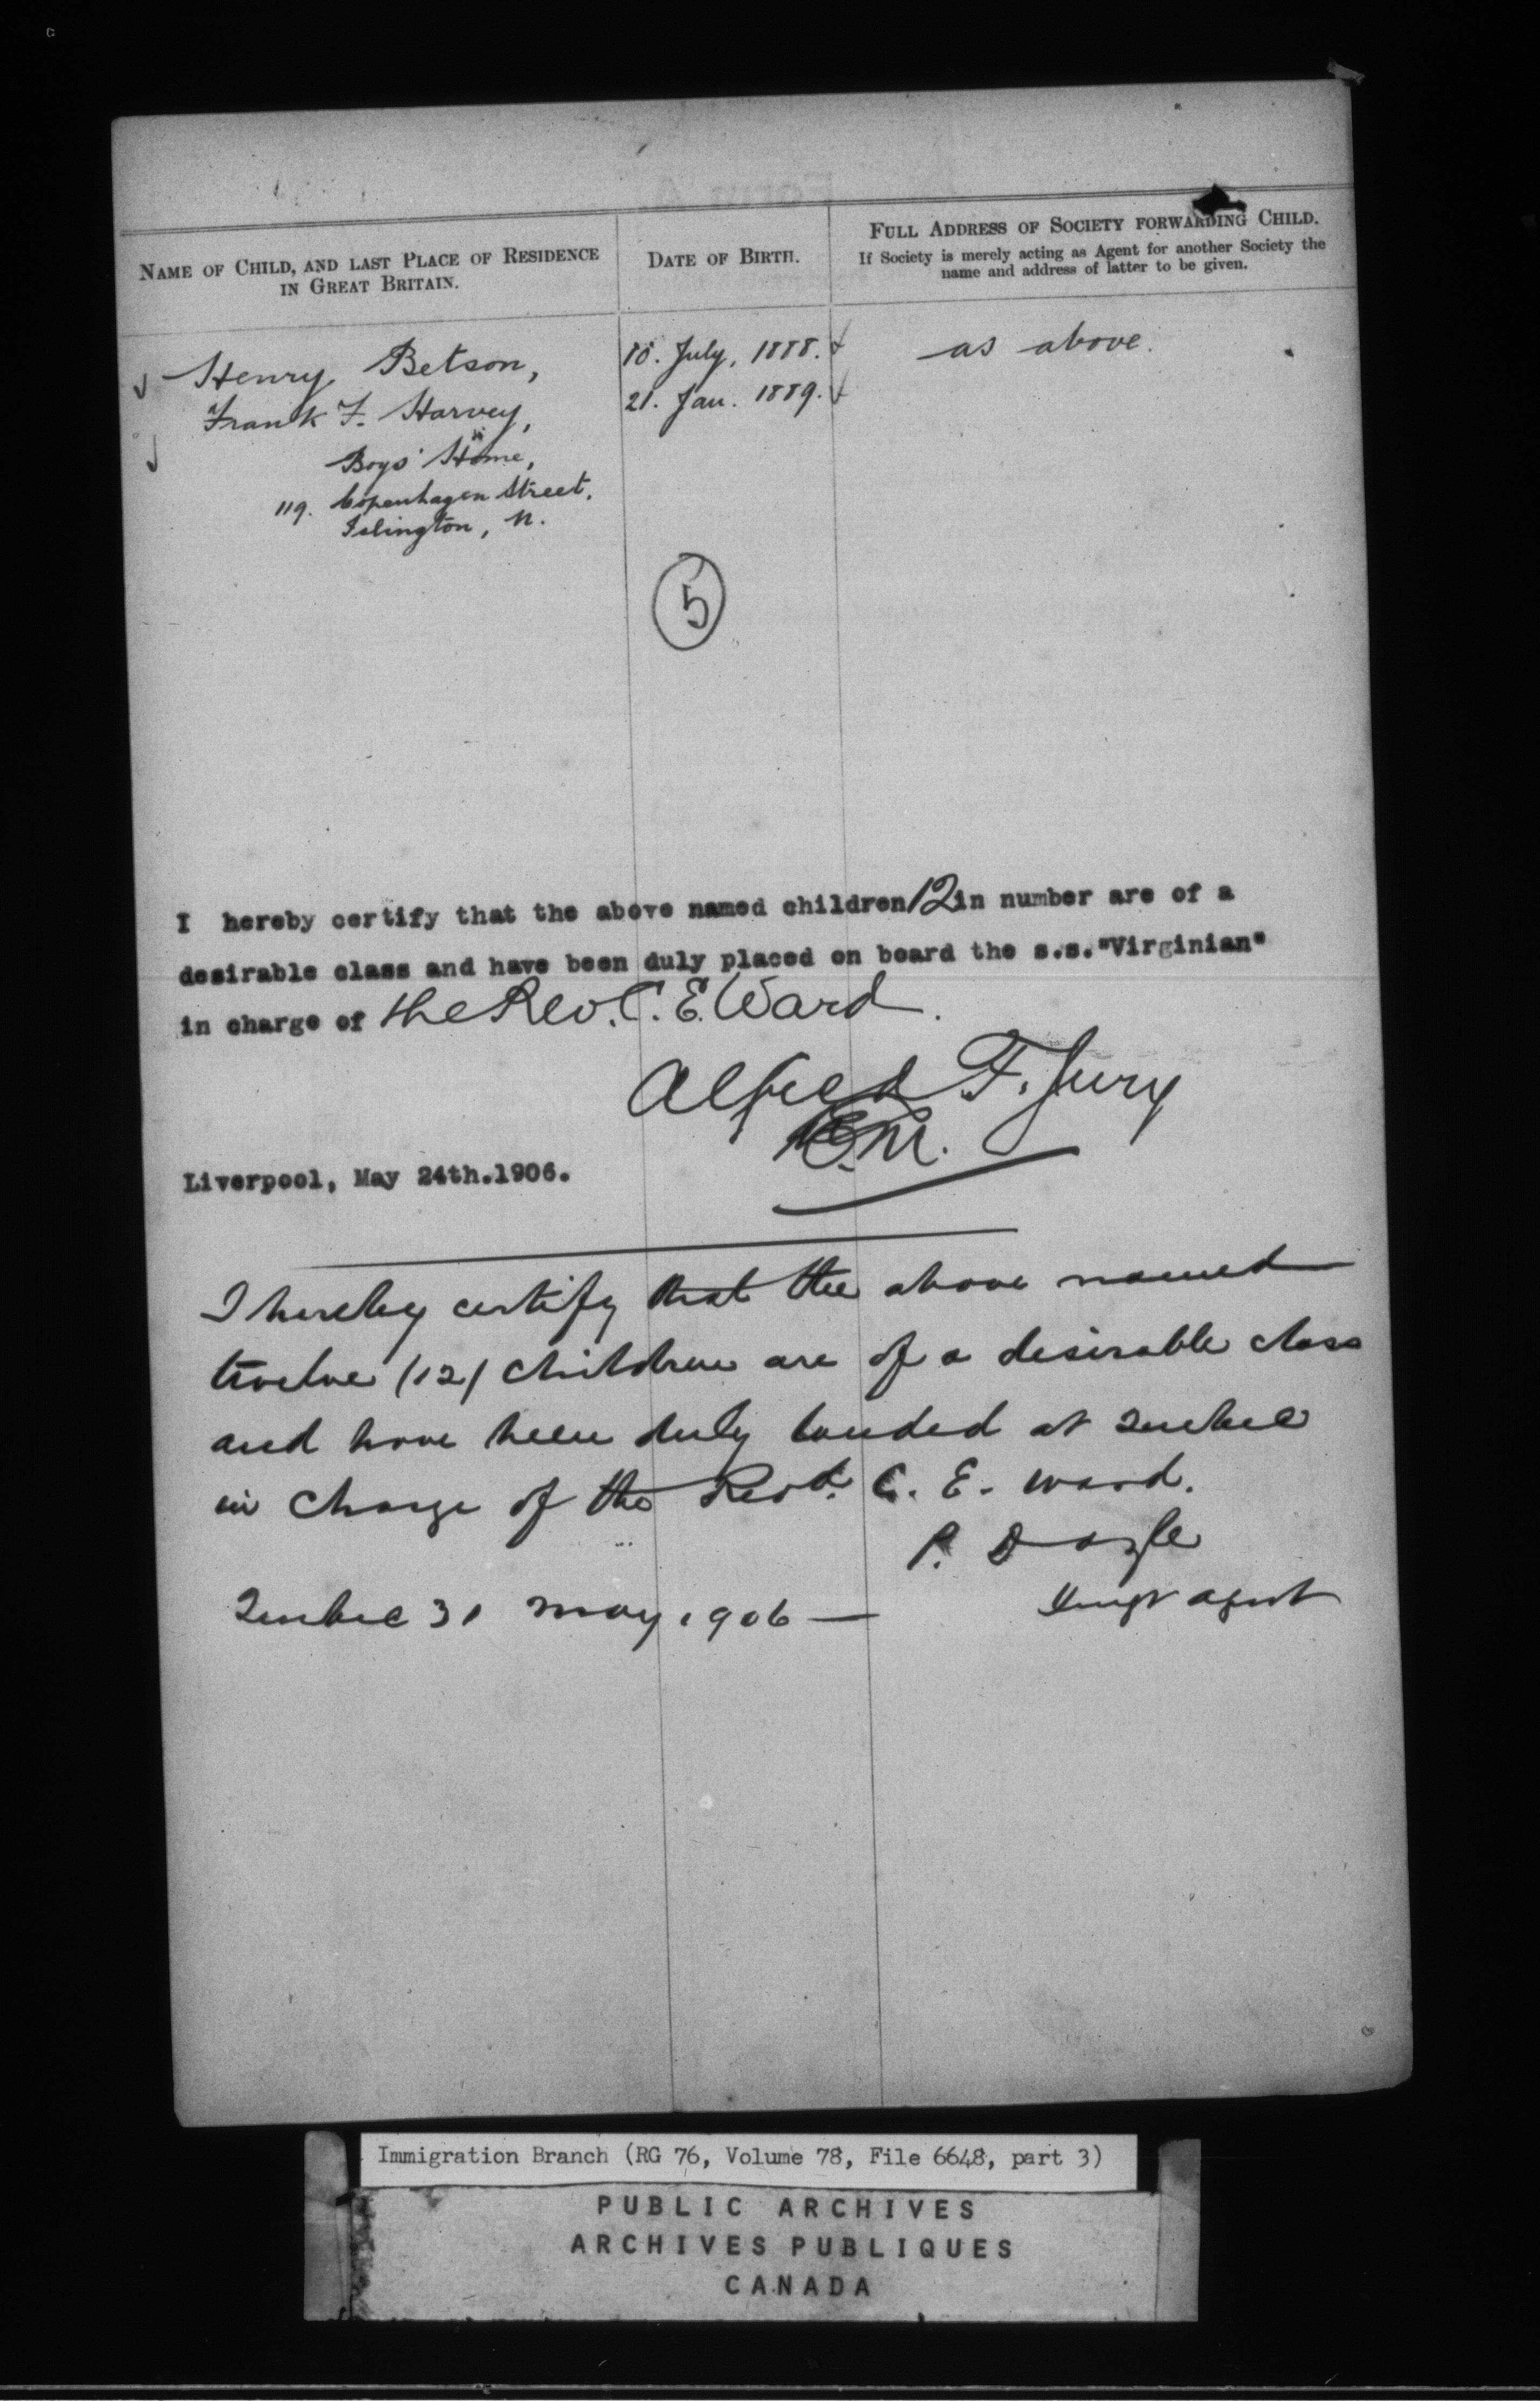 NAME OF CHILD, AND LAST PLACE OF RESIDENCE
IN GREAT BRITAIN.
DATE OF BIRTH.
FULL ADDRESS OF SOCIETY FORWARDING CHILD.
If Society is merely acting as Agent for another Society the
name and address of latter to be given.
Henry Betson,
10. July, 1888.
as above.
Frank F. Harvey,
21. Jan. 1889.
Boys' Home,
119. Copenhagen Street,
Islington, N.
5
I hereby certify that the above named children 12 in number are of a
desirable class and have been duly placed on board the s.s. "Virginian"
in charge of the Rev. C. E. Ward.
Alfred F. Jury
Liverpool, May 24th.1906.
I hereby certify that the above named
twelve (12) children are of a desirable class
and have been duly landed at Quebec
in charge of the Revd. C. E. Ward.
P. Doyle
Quebec 31 May 1906 —
Agent
Immigration Branch (RG 76, Volume 78, File 6648, part 3)
PUBLIC ARCHIVES
ARCHIVES PUBLIQUES
CANADA